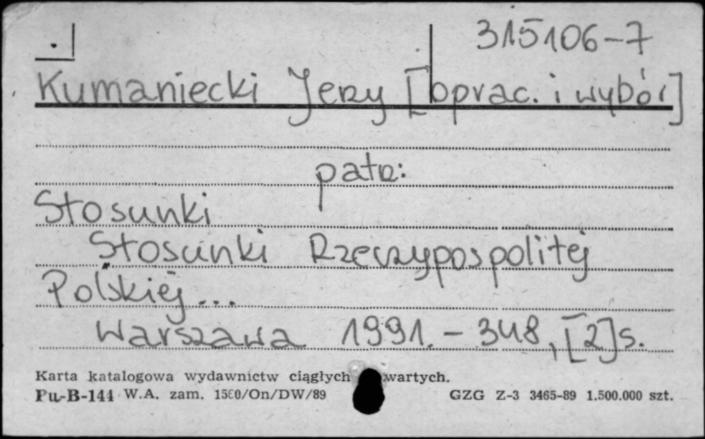 315106-7
Kumaniecki Jerzy [oprac. i wybór]
patrz:
Stosunki
Stosunki Rzeczypospolitej
Polskiej...
Warszawa 1991. – 348, [2] s.
Karta katalogowa wydawnictw ciągłych wartych.
Pu-B-144 W.A. zam. 1580/On/DW/89 GZG Z-3 3465-89 1.500.000 szt.